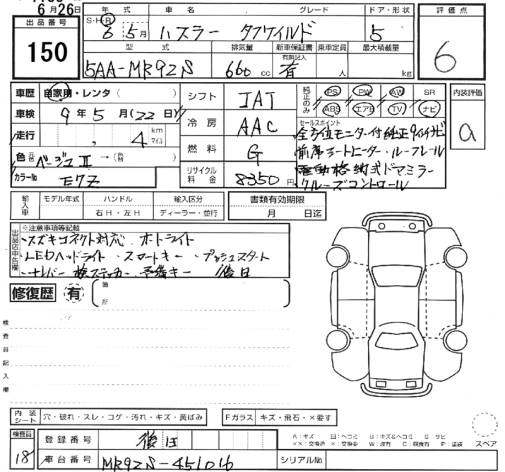 6月26日
出品番号 年式 車名 グレード ドア・形状 評価点
150
S・H・R 6 5月 ハスラー タフワイルド 5 6
型式 排気量 新車保証書 乗車定員 最大積載量
5AA-MR92S 660cc 有 人 kg
車歴 自家用・レンタ( ) シフト IAT 純正のみ PS PW AW SR 内装評価
車検 9年5月(22日) ABS エアB TV ナビ
走行 4 km マイル 冷房 AAC セールスポイント a
全方位モニター付純正9インチナビ
色 ベージュⅡ →( ) 燃料 G 前席シートヒーター・ルーフレール
カラーNo E7Z リサイクル料金 8350円 電動格納式ドアミラー
クルーズコントロール
輸入車 モデル年式 ハンドル 輸入区分 書類有効期限
年 右H・左H ディーラー・並行 月 日迄
出品店申告欄 ※注意事項等記載
スズキコネクト対応 オートライト
LEDヘッドライト スマートキー プッシュスタート
ナンバー 検ステッカー 予備キー 後日
修復歴 有 箇所
検査員記入欄
内装シート 穴・破れ・スレ・コゲ・汚れ・キズ・黄ばみ Fガラス キズ・飛石・×要す
検査員 18 登録番号 後日 スペア
車台番号 MR92S-451016 シリアルNo.